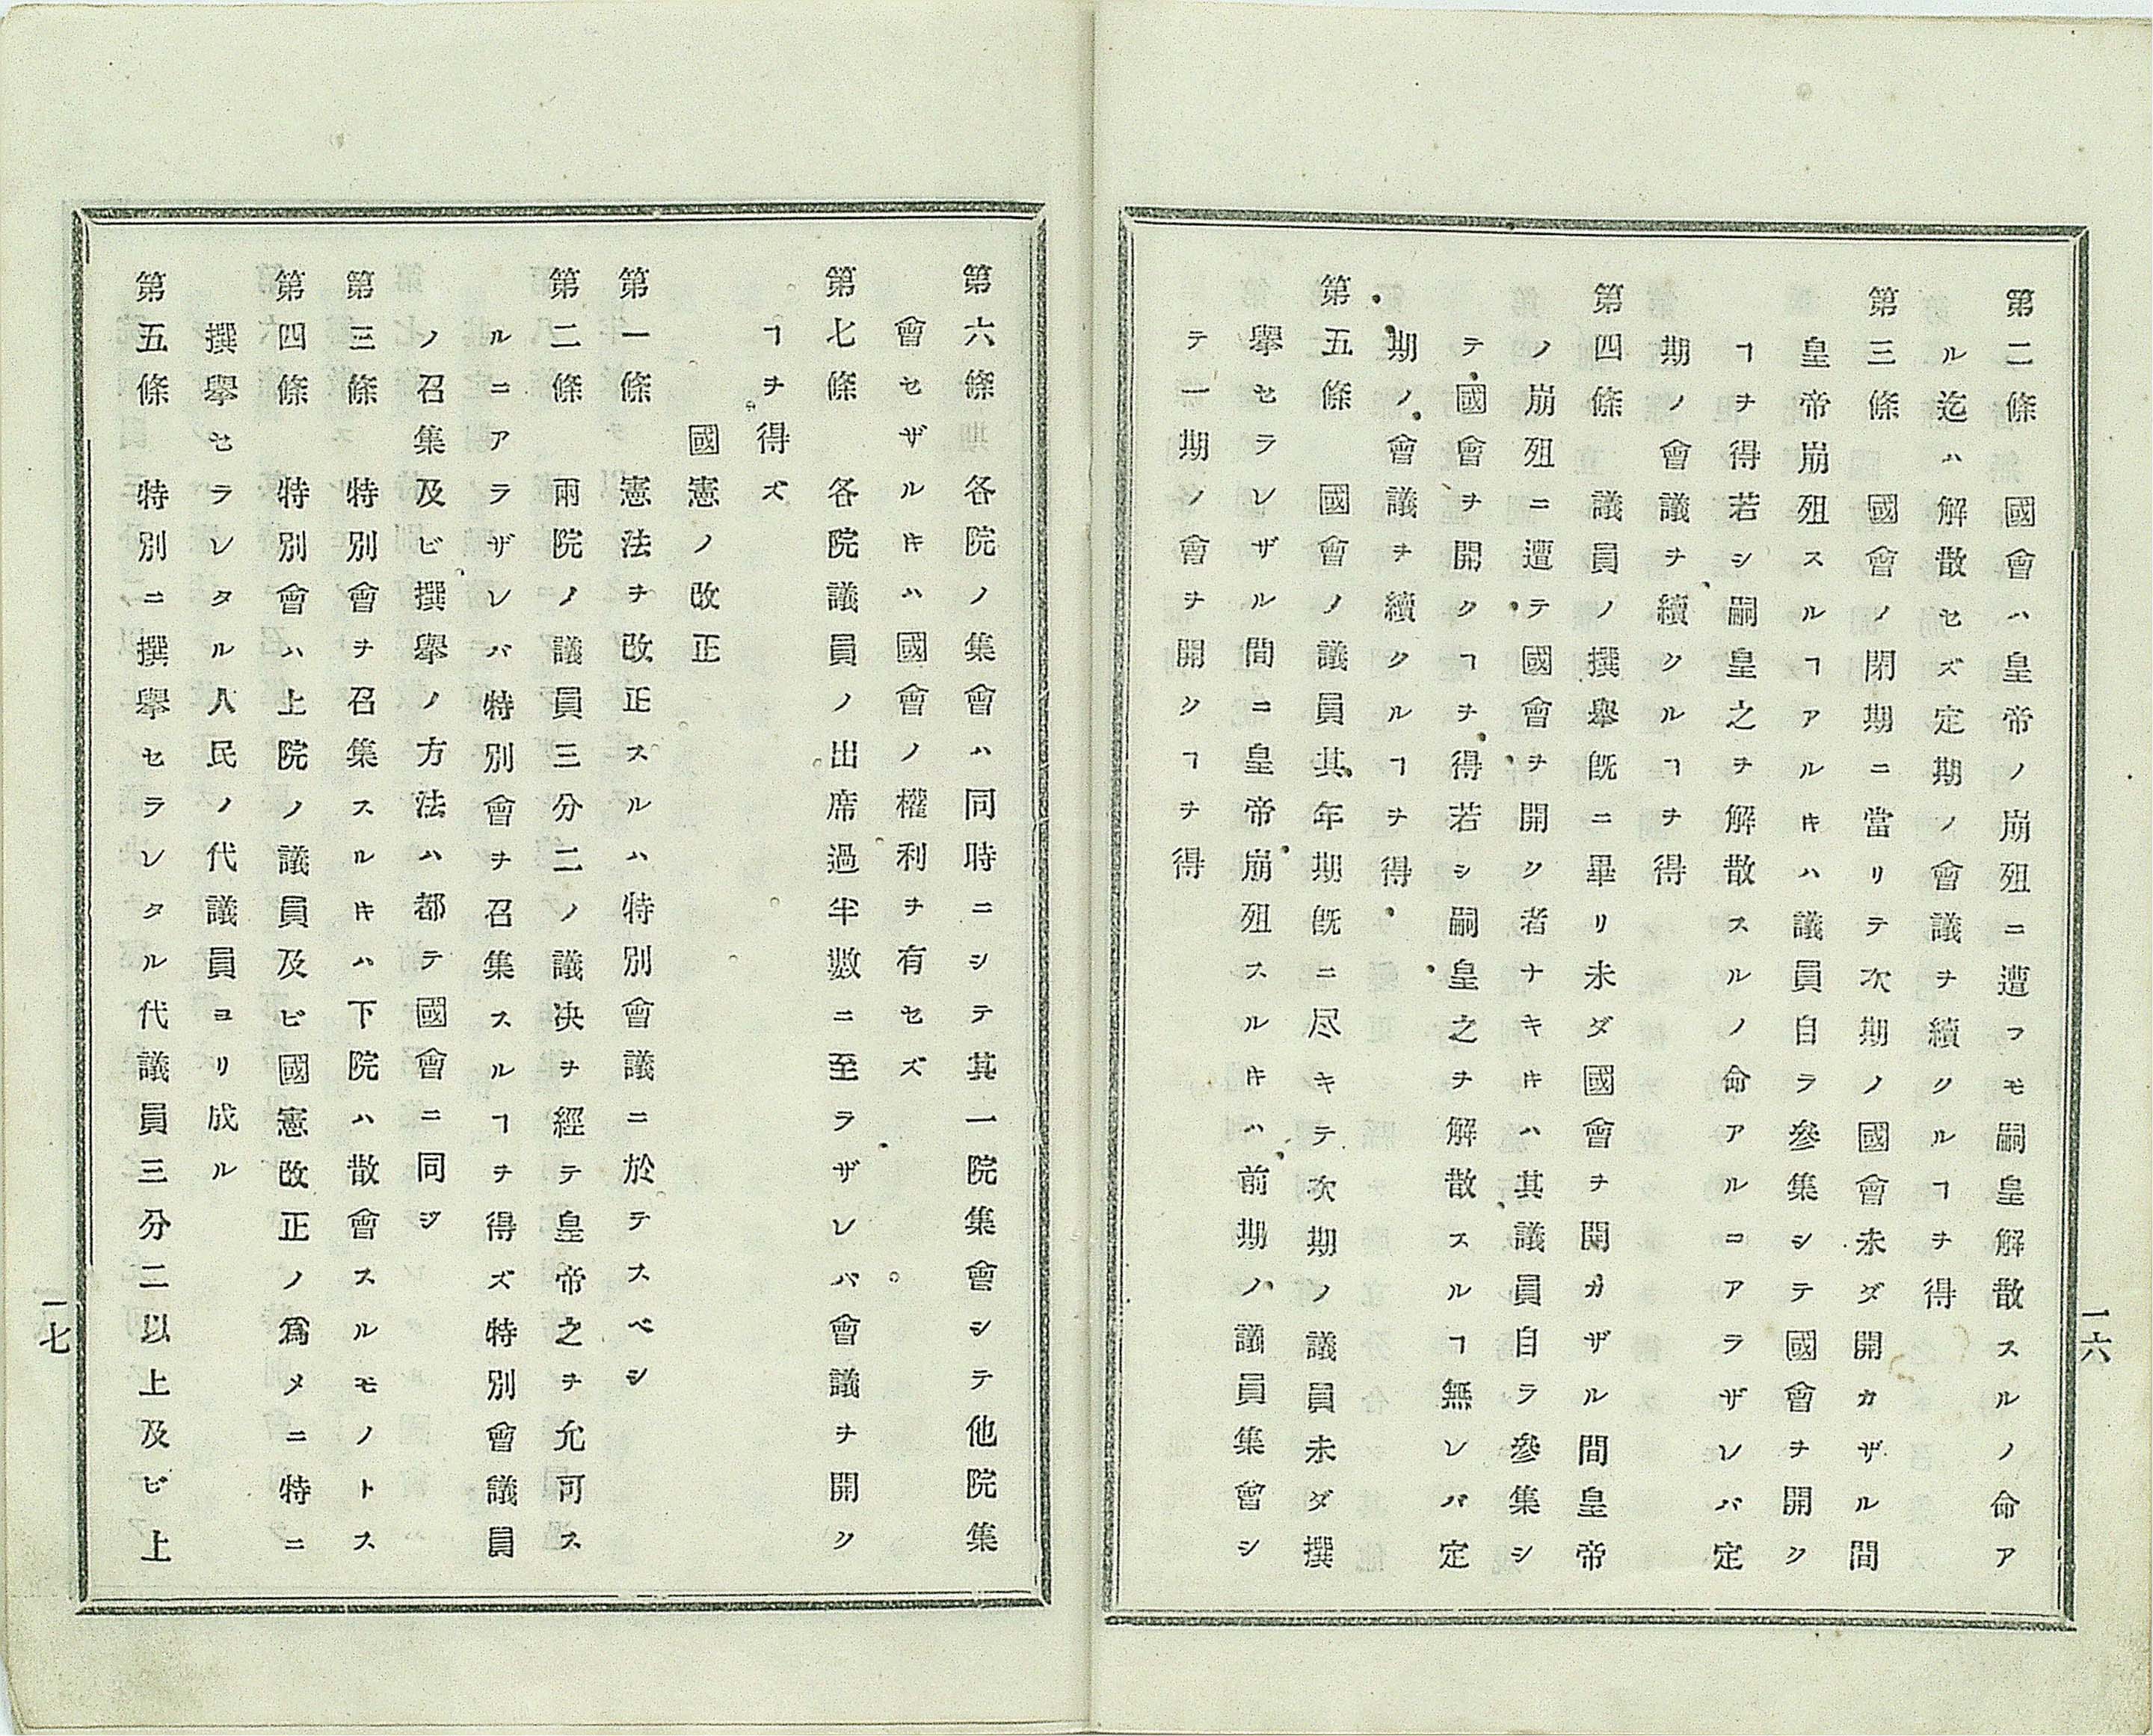 第二條　國會ハ皇帝ノ崩殂ニ遭フモ嗣皇解散スルノ命ア
ル迄ハ解散セズ定期ノ會議ヲ續クルヿヲ得
第三條　國會ノ閉期ニ當リテ次期ノ國會未ダ開カザル間
皇帝崩殂スルヿアルキハ議員自ラ參集シテ國會ヲ開ク
ヿヲ得若シ嗣皇之ヲ解散スルノ命アルコアラザレバ定
期ノ會議ヲ續クルヿヲ得
第四條　議員ノ撰擧既ニ畢リ未ダ國會ヲ開カザル間皇帝
ノ崩殂ニ遭テ國會ヲ開ク者ナキキハ其議員自ラ參集シ
テ國會ヲ開クヿヲ得若シ嗣皇之ヲ解散スルヿ無レバ定
期ノ會議ヲ續クルヿヲ得
第五條　國會ノ議員其年期既ニ尽キテ次期ノ議員未ダ撰
擧セラレザル間ニ皇帝崩殂スルキハ前期ノ議員集會シ
テ一期ノ會ヲ開クヿヲ得
一六
第六條　各院ノ集會ハ同時ニシテ其一院集會シテ他院集
會セザルキハ國會ノ權利ヲ有セズ
第七條　各院議員ノ出席過半數ニ至ラザレバ會議ヲ開ク
ヿヲ得ズ
國憲ノ改正
第一條　憲法ヲ改正スルハ特別會議ニ於テスベシ
第二條　兩院ノ議員三分二ノ議决ヲ經テ皇帝之ヲ允可ス
ルニアラザレバ特別會ヲ召集スルヿヲ得ズ特別會議員
ノ召集及ビ撰擧ノ方法ハ都テ國會ニ同ジ
第三條　特別會ヲ召集スルキハ下院ハ散會スルモノトス
第四條　特別會ハ上院ノ議員及ビ國憲改正ノ爲メニ特ニ
撰擧セラレタル人民ノ代議員ヨリ成ル
第五條　特別ニ撰擧セラレタル代議員三分二以上及ビ上
一七